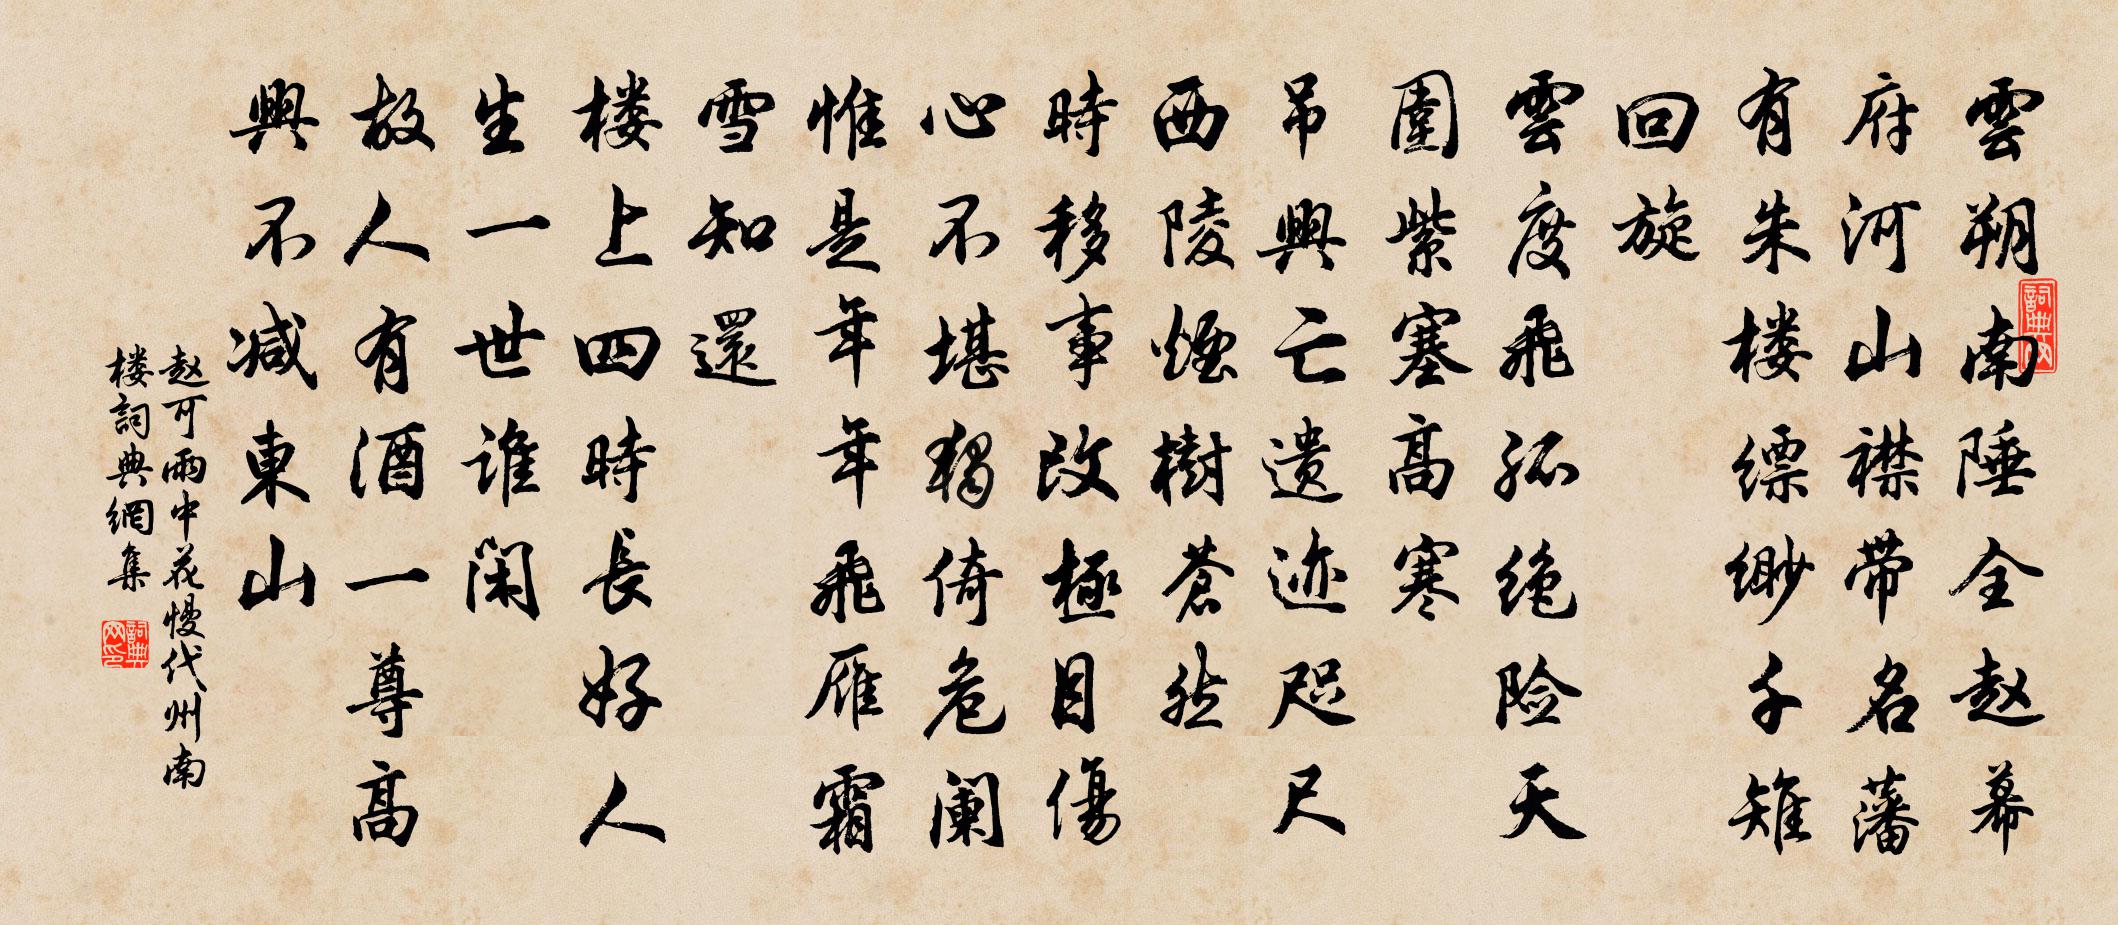 雲朔南陲全赵幕
府河山襟带名藩
有朱楼缥缈千雉
回旋
雲度飛狐绝险天
圍紫塞高寒
吊興亡遗迹咫尺
西陵煙樹蒼然
時移事改極目傷
心不堪獨倚危阑
惟是年年飛雁霜
雪知還
楼上四時長好人
生一世谁闲
故人有酒一尊高
興不减東山
赵可雨中花慢代州南
楼詞典網集
詞典网
詞典网印